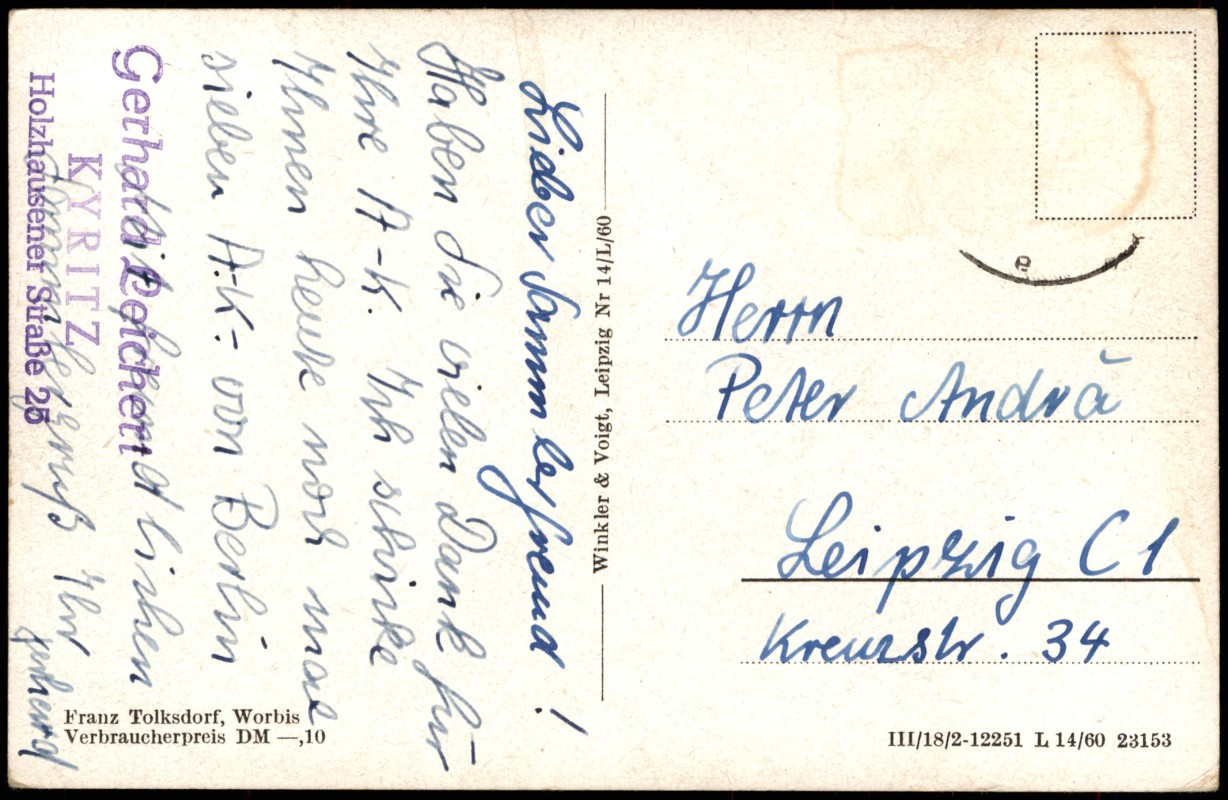 Lieber Sammlerfreund!
Haben Sie vielen Dank für
Ihre A-K. Ich schicke
Ihnen heute noch mal
sieben A.K.- von Berlin
Mit freundlichen
Sammlergruß Ihr
Gerhard
Gerhard Leichert
KYRITZ
Holzhausener Straße 25
Franz Tolksdorf, Worbis
Verbraucherpreis DM —,10
Winkler & Voigt, Leipzig Nr 14/L/60
Herrn
Peter Andrä
Leipzig C 1
Kreuzstr. 34
III/18/2-12251 L 14/60 23153